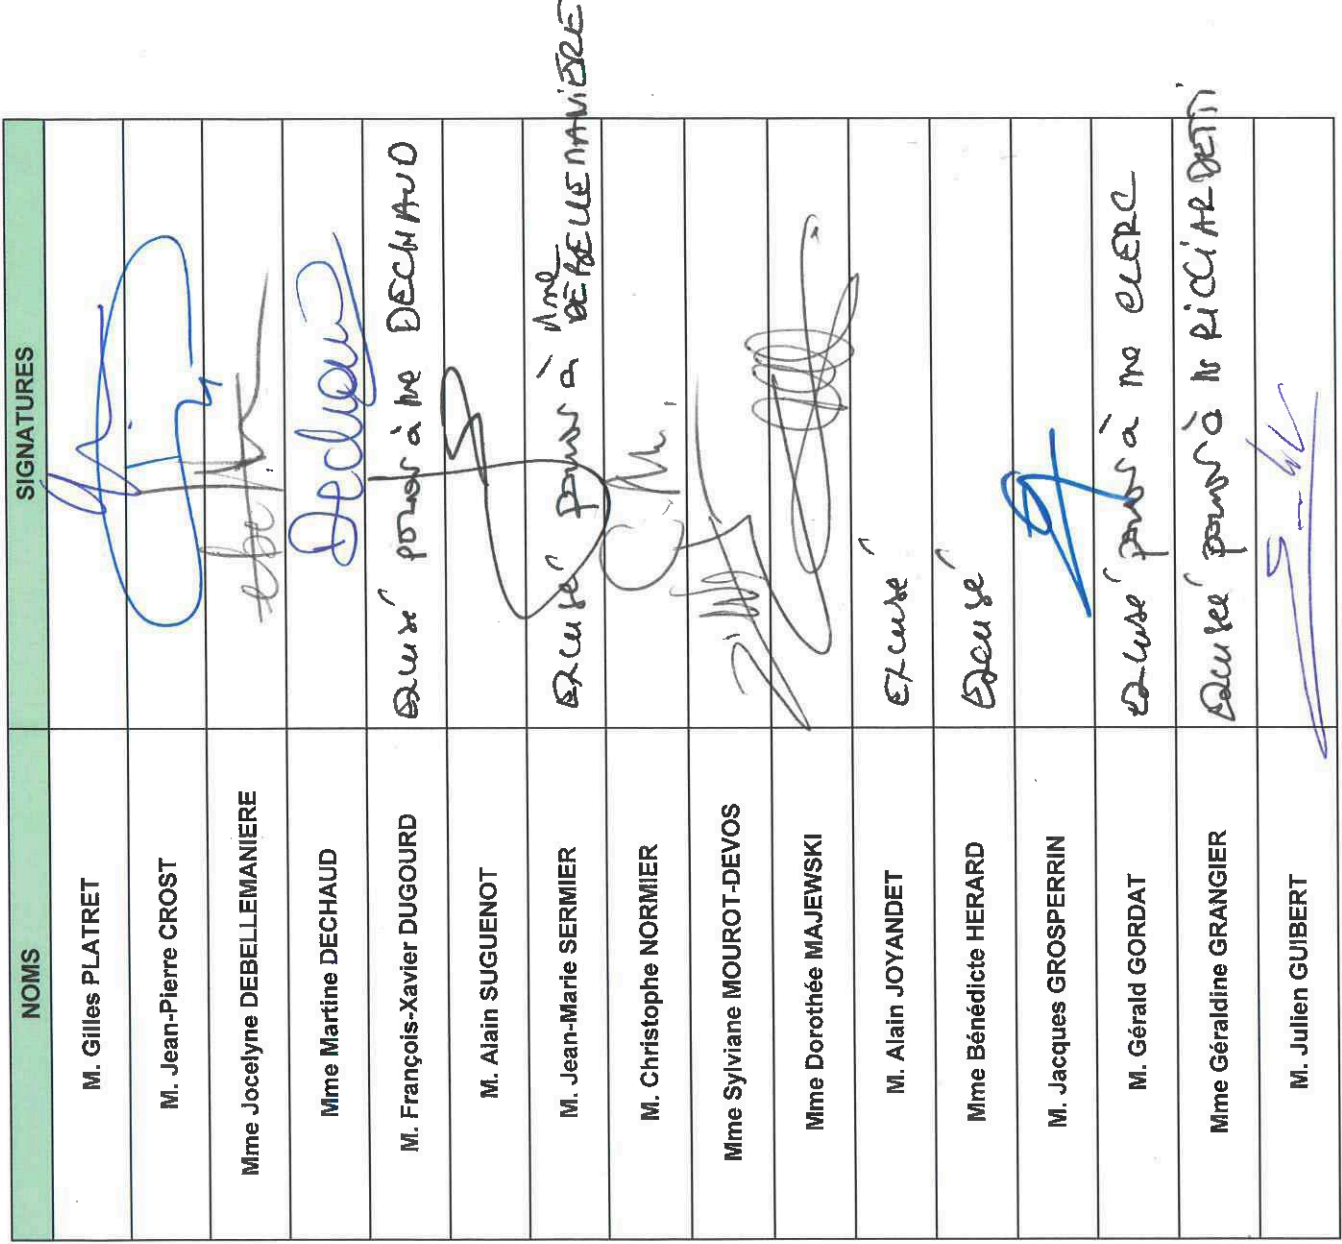 NOMS SIGNATURES
M. Gilles PLATRET
M. Jean-Pierre CROST
Mme Jocelyne DEBELLEMANIERE
Mme Martine DECHAUD Dechaud
M. François-Xavier DUGOURD Excusé pouvoir à Mme DECHAUD
M. Alain SUGUENOT
M. Jean-Marie SERMIER Excusé pouvoir à Mme DEBELLEMANIERE
M. Christophe NORMIER
Mme Sylviane MOUROT-DEVOS
Mme Dorothée MAJEWSKI
M. Alain JOYANDET Excusé
Mme Bénédicte HERARD Excusé
M. Jacques GROSPERRIN
M. Gérald GORDAT Excusé pouvoir à Me CLERC
Mme Géraldine GRANGIER Excusée pouvoir à Mr RICCIARDETTI
M. Julien GUIBERT